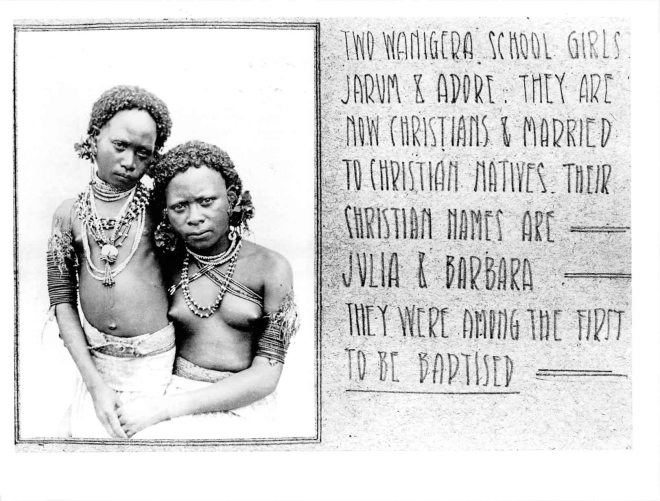 TWO WANIGERA SCHOOL GIRLS
JARUM & ADORE. THEY ARE
NOW CHRISTIANS & MARRIED
TO CHRISTIAN NATIVES. THEIR
CHRISTIAN NAMES ARE
JULIA & BARBARA
THEY WERE AMONG THE FIRST
TO BE BAPTISED